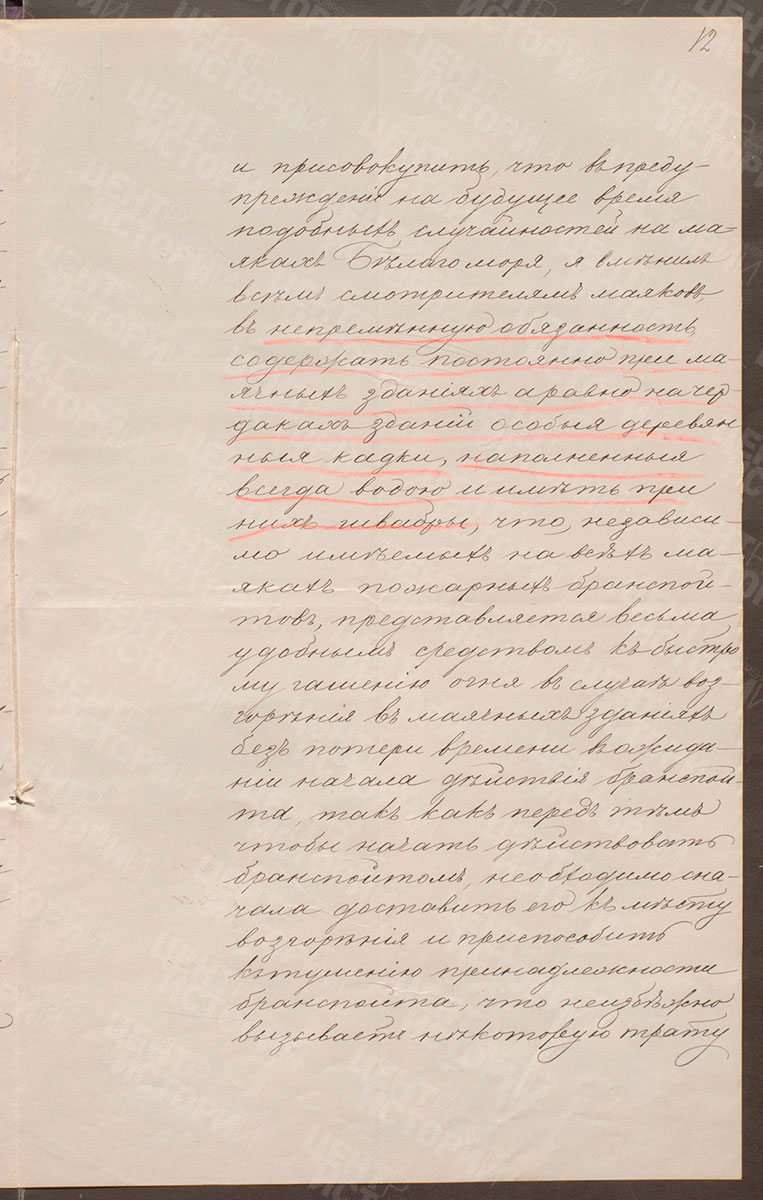 12
и присовокупить, что въ преду-
прежденіе на будущее время
подобныхъ случайностей на ма-
якахъ Бѣлаго моря, я вмѣнилъ
всѣмъ смотрителямъ маяковъ
въ непремѣнную обязанность
содержать постоянно при ма-
ячныхъ зданіяхъ а равно на чер-
дакахъ зданій особыя деревян
ныя кадки, наполненныя
всегда водою и имѣть при
нихъ швабры, что, независи-
мо имѣемыхъ на всѣхъ ма-
якахъ пожарныхъ брандспой-
товъ, представляется весьма
удобнымъ средствомъ къ быстро
му гашенію огня въ случаѣ воз-
горѣнія въ маячныхъ зданіяхъ
безъ потери времени въ ожида-
ніи начала дѣйствія бранспой-
та, такъ какъ передъ тѣмъ
чтобы начать дѣйствовать
бранспойтомъ, необходимо сна-
чала доставить его къ мѣсту
возгорѣнія и приспособить
къ тушенію принадлежности
бранспойта, что неизбѣжно
вызываетъ нѣкоторую трату
ЦЕНТР
ИСТОРИИ